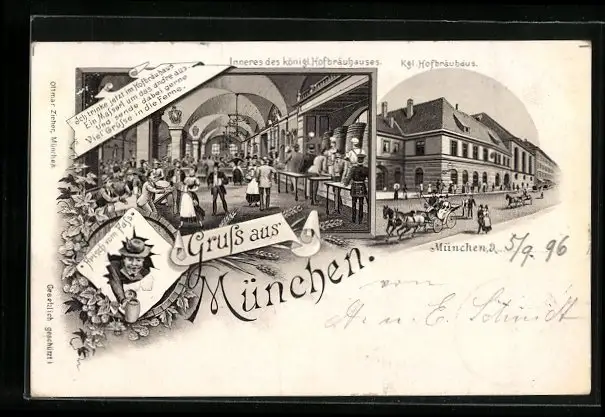 Inneres des königl. Hofbräuhauses.
Kgl. Hofbräuhaus.
Ich trinke jetzt im Hofbräuhaus
Ein Maßerl um das andre aus
Und sende dabei gerne
Viel Grüße in die Ferne.
Ottmar Zieher, München
Frisch vom Faß
Gruß aus
München.
München, d. 5/9. 96
von
A. u. E. Schmidt
Gesetzlich geschützt